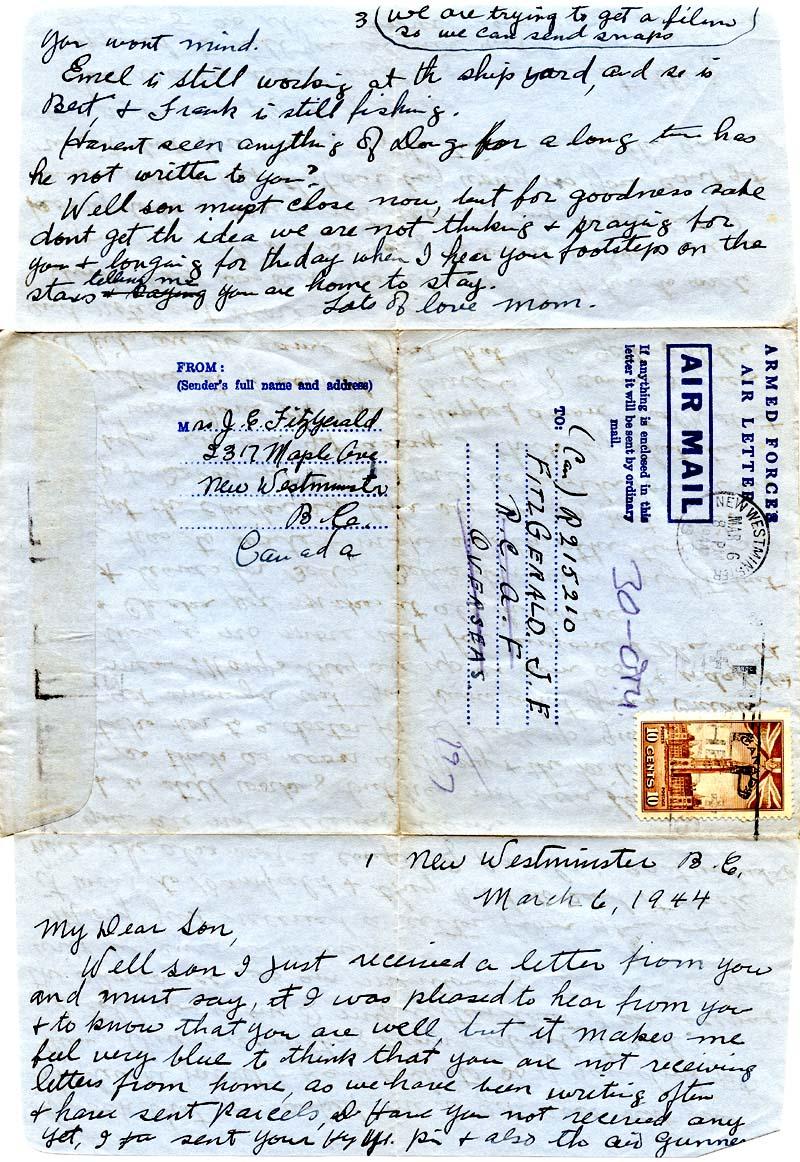 3 (we are trying to get a film
so we can send snaps
you wont mind.
Emel is still working at th ship yard, and so is
Bert, & Frank is still fishing.
Havent seen anything of Doug for a long time has
he not written to you?
Well son must close now, but for goodness sake
dont get th idea we are not thinking & praying for
you & longing for the day when I hear your footsteps on the
stairs & saying telling me you are home to stay.
Lots of love mom.
FROM:
(Sender's full name and address)
Mrs J. E. Fitzgerald
2317 Maple Ave
New Westminster
B.C.
Canada
ARMED FORCES
AIR LETTER
AIR MAIL
If anything is enclosed in this
letter it will be sent by ordinary
mail.
NEW WESTMINSTER
MAR 6
30-OTU.
TO:
(Can) R215210
FITZGERALD. J. F
R.C.A.F
OVERSEAS
CANADA
POSTES POSTAGE
10 CENTS 10
1 New Westminster B.C.
March 6, 1944
My Dear Son,
Well son I just received a letter from you
and must say, I was pleased to hear from you
& to know that you are well, but it makes me
feel very blue to think that you are not receiving
letters from home, as we have been writing often
& have sent Parcels, Have you not received any
yet, I sent your pin & also th air gunner